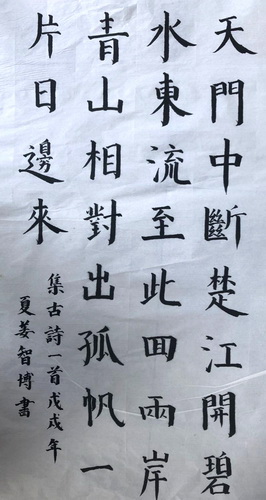 天門中斷楚江開碧
水東流至此回兩岸
青山相對出孤帆一
片日邊來
集古詩一首戊戌年
夏姜智博書